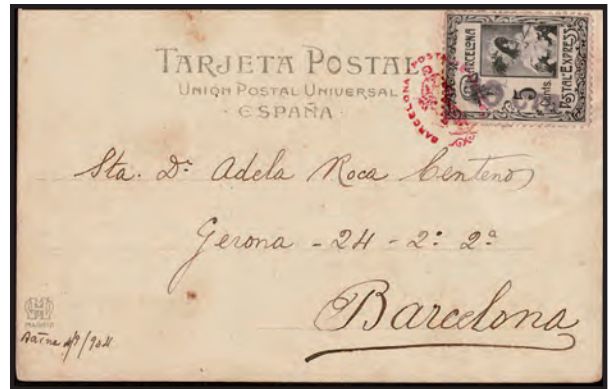 TARJETA POSTAL
UNIÓN POSTAL UNIVERSAL
· ESPAÑA ·
BARCELONA
5
Cents.
POSTAL EXPRESS
BARCELONA POSTAL
Sta. Dª Adela Roca Centeno
Gerona - 24 - 2º 2ª
Barcelona
MADRID
/904